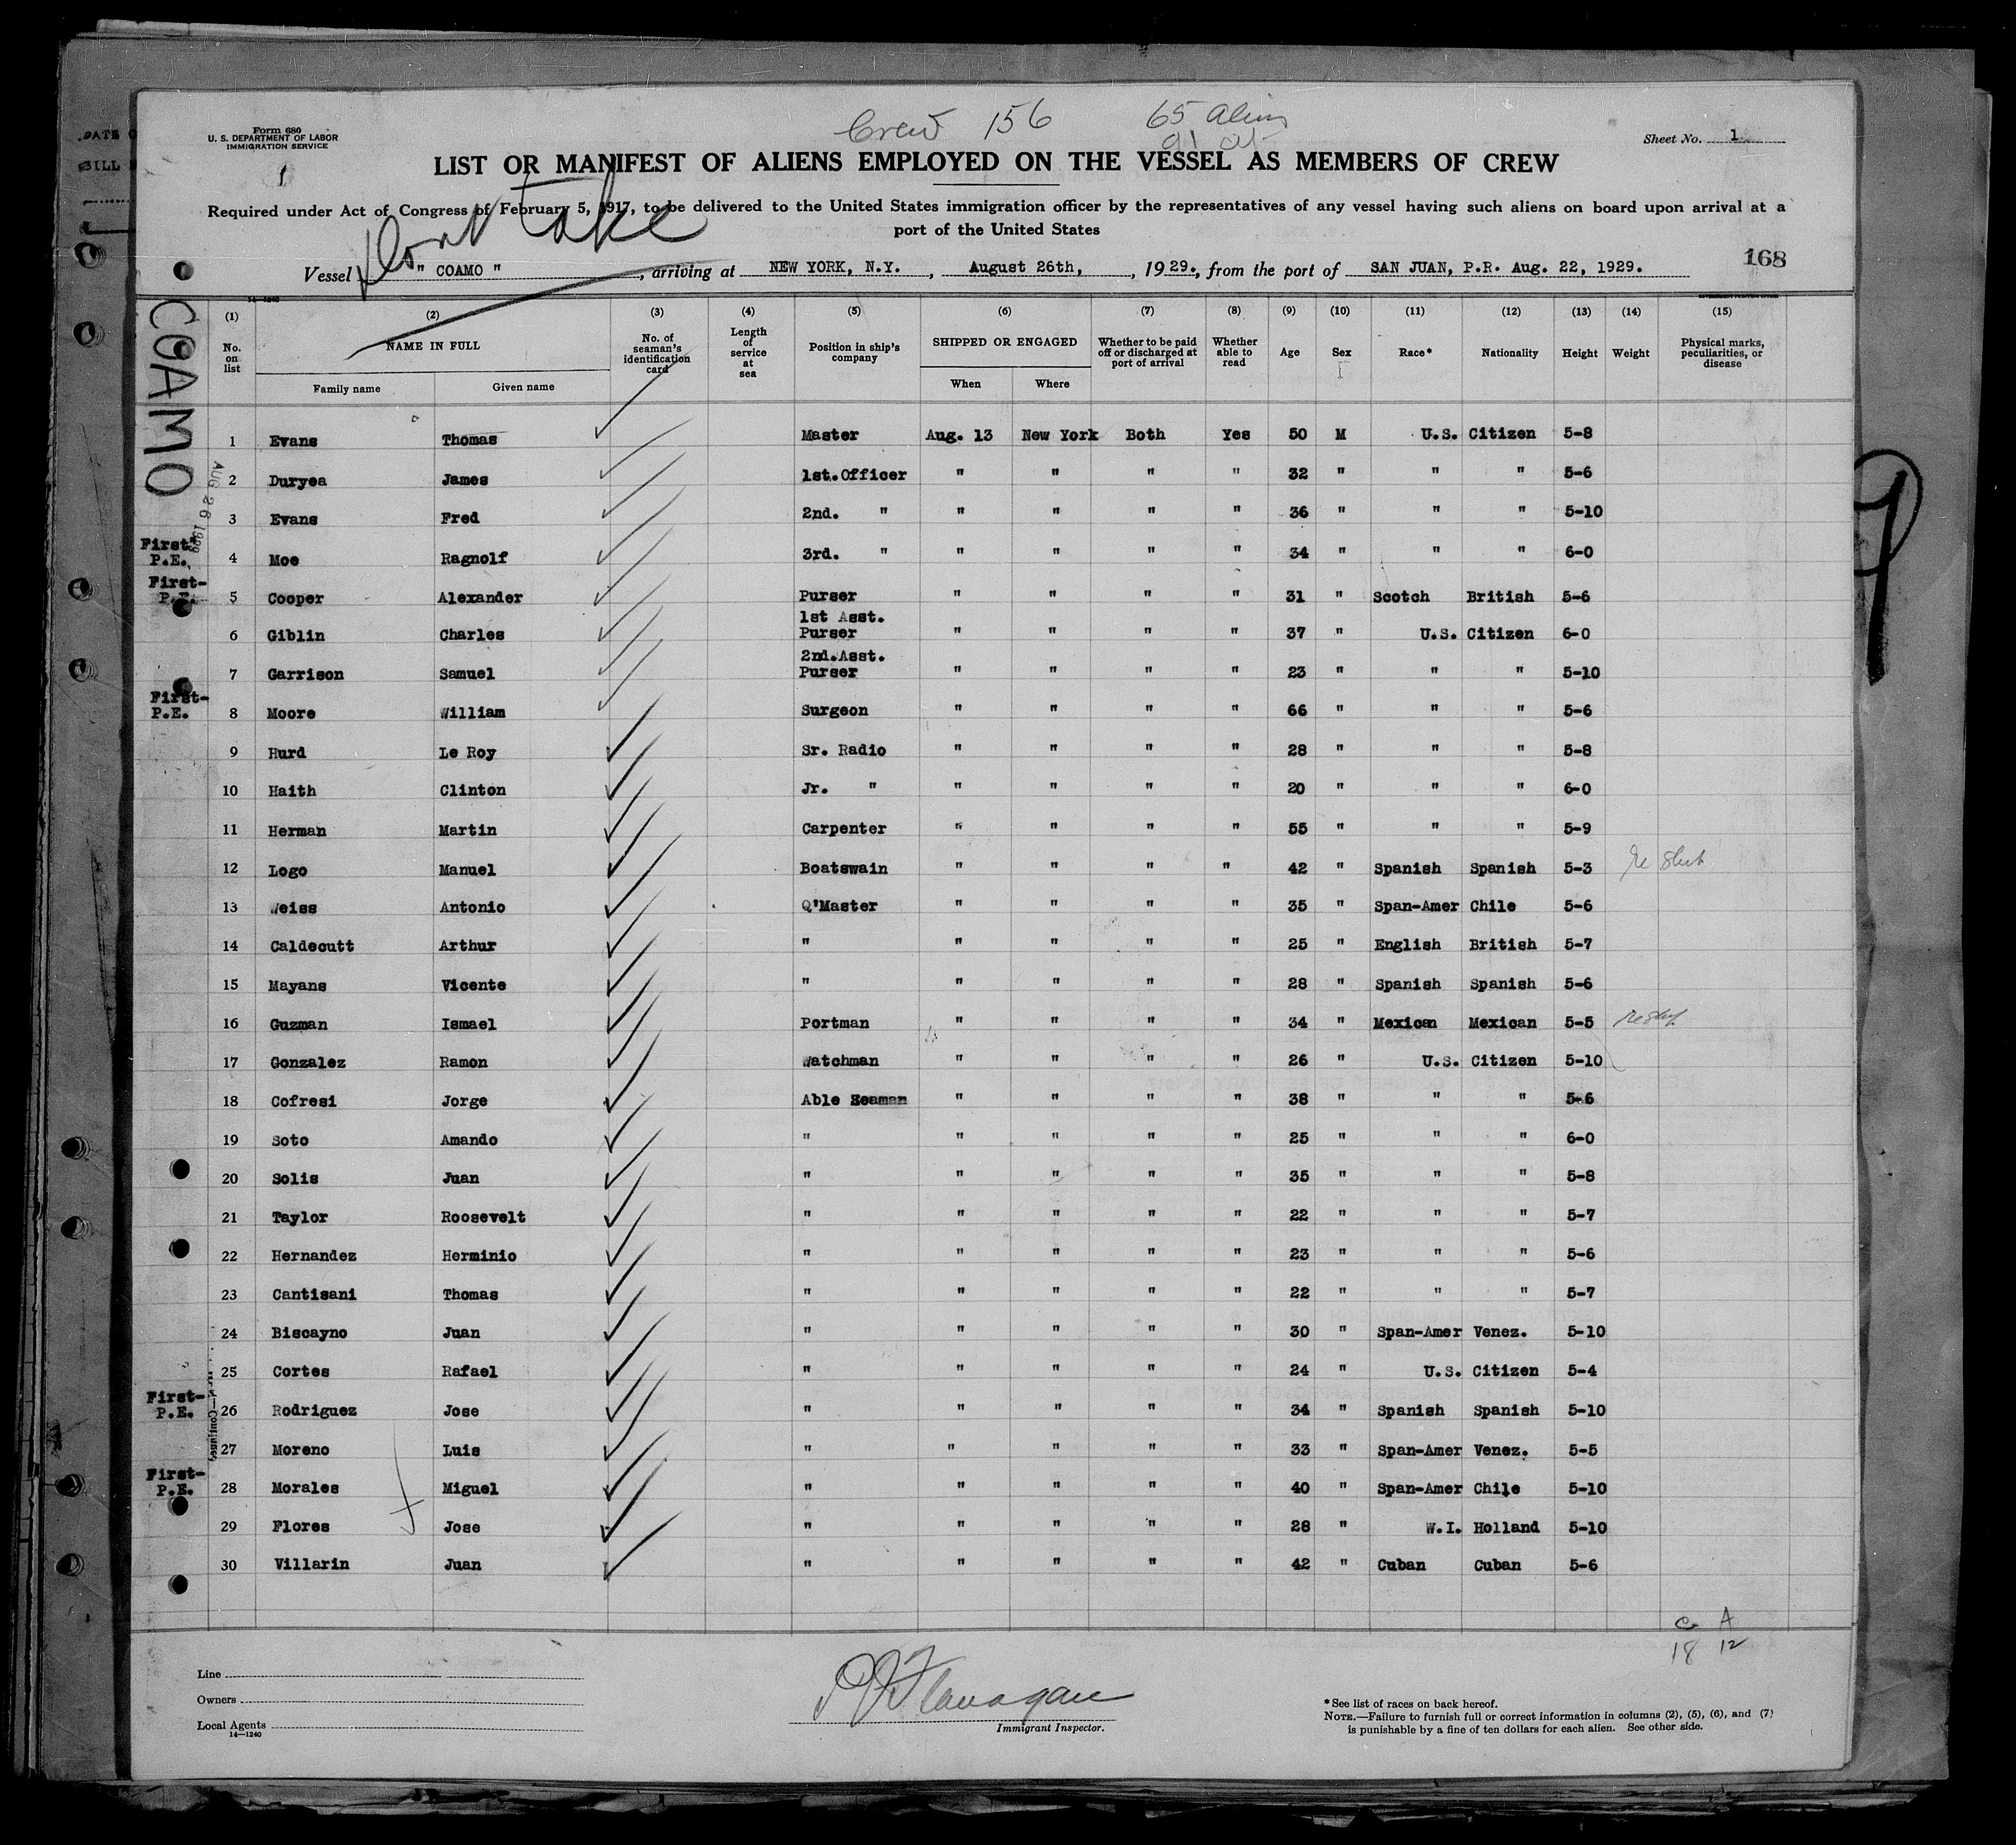 DATE O
BILL
Form 680
U. S. DEPARTMENT OF LABOR
IMMIGRATION SERVICE
1
Crew 156 65 aliens
91 cit
Sheet No. 1
LIST OR MANIFEST OF ALIENS EMPLOYED ON THE VESSEL AS MEMBERS OF CREW
Required under Act of Congress of February 5, 1917, to be delivered to the United States immigration officer by the representatives of any vessel having such aliens on board upon arrival at a
port of the United States
Dont Take
168
Vessel " COAMO ", arriving at NEW YORK, N.Y., August 26th, , 1929., from the port of SAN JUAN, P.R. Aug. 22, 1929.
COAMO
AUG 26 1929
14-1240
(1) (2) (3) (4) (5) (6) (7) (8) (9) (10) (11) (12) (13) (14) (15)
No. on list NAME IN FULL No. of seaman's identification card Length of service at sea Position in ship's company SHIPPED OR ENGAGED Whether to be paid off or discharged at port of arrival Whether able to read Age Sex Race* Nationality Height Weight Physical marks, peculiarities, or disease
Family name Given name When Where
1 Evans Thomas Master Aug. 13 New York Both Yes 50 M U.S. Citizen 5-8
2 Duryea James 1st.Officer " " " " 32 " " " 5-6
3 Evans Fred 2nd. " " " " " 36 " " " 5-10
First- P.E. 4 Moe Ragnolf 3rd. " " " " " 34 " " " 6-0
First- P.E. 5 Cooper Alexander Purser " " " " 31 " Scotch British 5-6
6 Giblin Charles 1st Asst. Purser " " " " 37 " U.S. Citizen 6-0
7 Garrison Samuel 2nd.Asst. Purser " " " " 23 " " " 5-10
First- P.E. 8 Moore William Surgeon " " " " 66 " " " 5-6
9 Hurd Le Roy Sr. Radio " " " " 28 " " " 5-8
10 Haith Clinton Jr. " " " " " 20 " " " 6-0
11 Herman Martin Carpenter " " " " 55 " " " 5-9
12 Logo Manuel Boatswain " " " " 42 " Spanish Spanish 5-3
13 Weiss Antonio Q'Master " " " " 35 " Span-Amer Chile 5-6
14 Caldecutt Arthur " " " " " 25 " English British 5-7
15 Mayans Vicente " " " " " 28 " Spanish Spanish 5-6
16 Guzman Ismael Portman " " " " 34 " Mexican Mexican 5-5
17 Gonzalez Ramon Watchman " " " " 26 " U.S. Citizen 5-10
18 Cofresi Jorge Able Seaman " " " " 38 " " " 5-6
19 Soto Amando " " " " " 25 " " " 6-0
20 Solis Juan " " " " " 35 " " " 5-8
21 Taylor Roosevelt " " " " " 22 " " " 5-7
22 Hernandez Herminio " " " " " 23 " " " 5-6
23 Cantisani Thomas " " " " " 22 " " " 5-7
24 Biscayno Juan " " " " " 30 " Span-Amer Venez. 5-10
25 Cortes Rafael " " " " " 24 " U.S. Citizen 5-4
First- P.E. 26 Rodriguez Jose " " " " " 34 " Spanish Spanish 5-10
27 Moreno Luis " " " " " 33 " Span-Amer Venez. 5-5
First- P.E. 28 Morales Miguel " " " " " 40 " Span-Amer Chile 5-10
29 Flores Jose " " " " " 28 " W.I. Holland 5-10
30 Villarin Juan " " " " " 42 " Cuban Cuban 5-6
C A
18 12
Line
Owners
Local Agents
14-1240
Flanagan
Immigrant Inspector.
*See list of races on back hereof.
NOTE.—Failure to furnish full or correct information in columns (2), (5), (6), and (7)
is punishable by a fine of ten dollars for each alien. See other side.